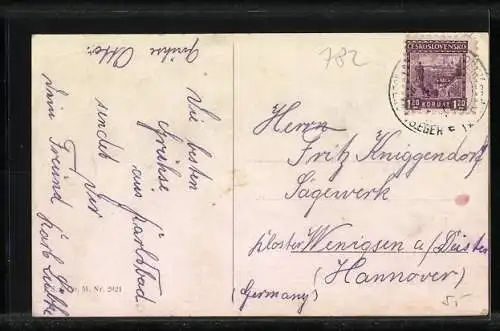 782
Die besten
Grüsse
aus Karlsbad
sendet Dir
Dein Freund
Karl
Grüsse Otto.
Nr. 2421
ČESKOSLOVENSKO
1.20 KORUNY 1.20
EGER
Herrn
Fritz Kniggendorf
Sägewerk
Kloster Wenigsen a/Deister
(Hannover)
(Germany)